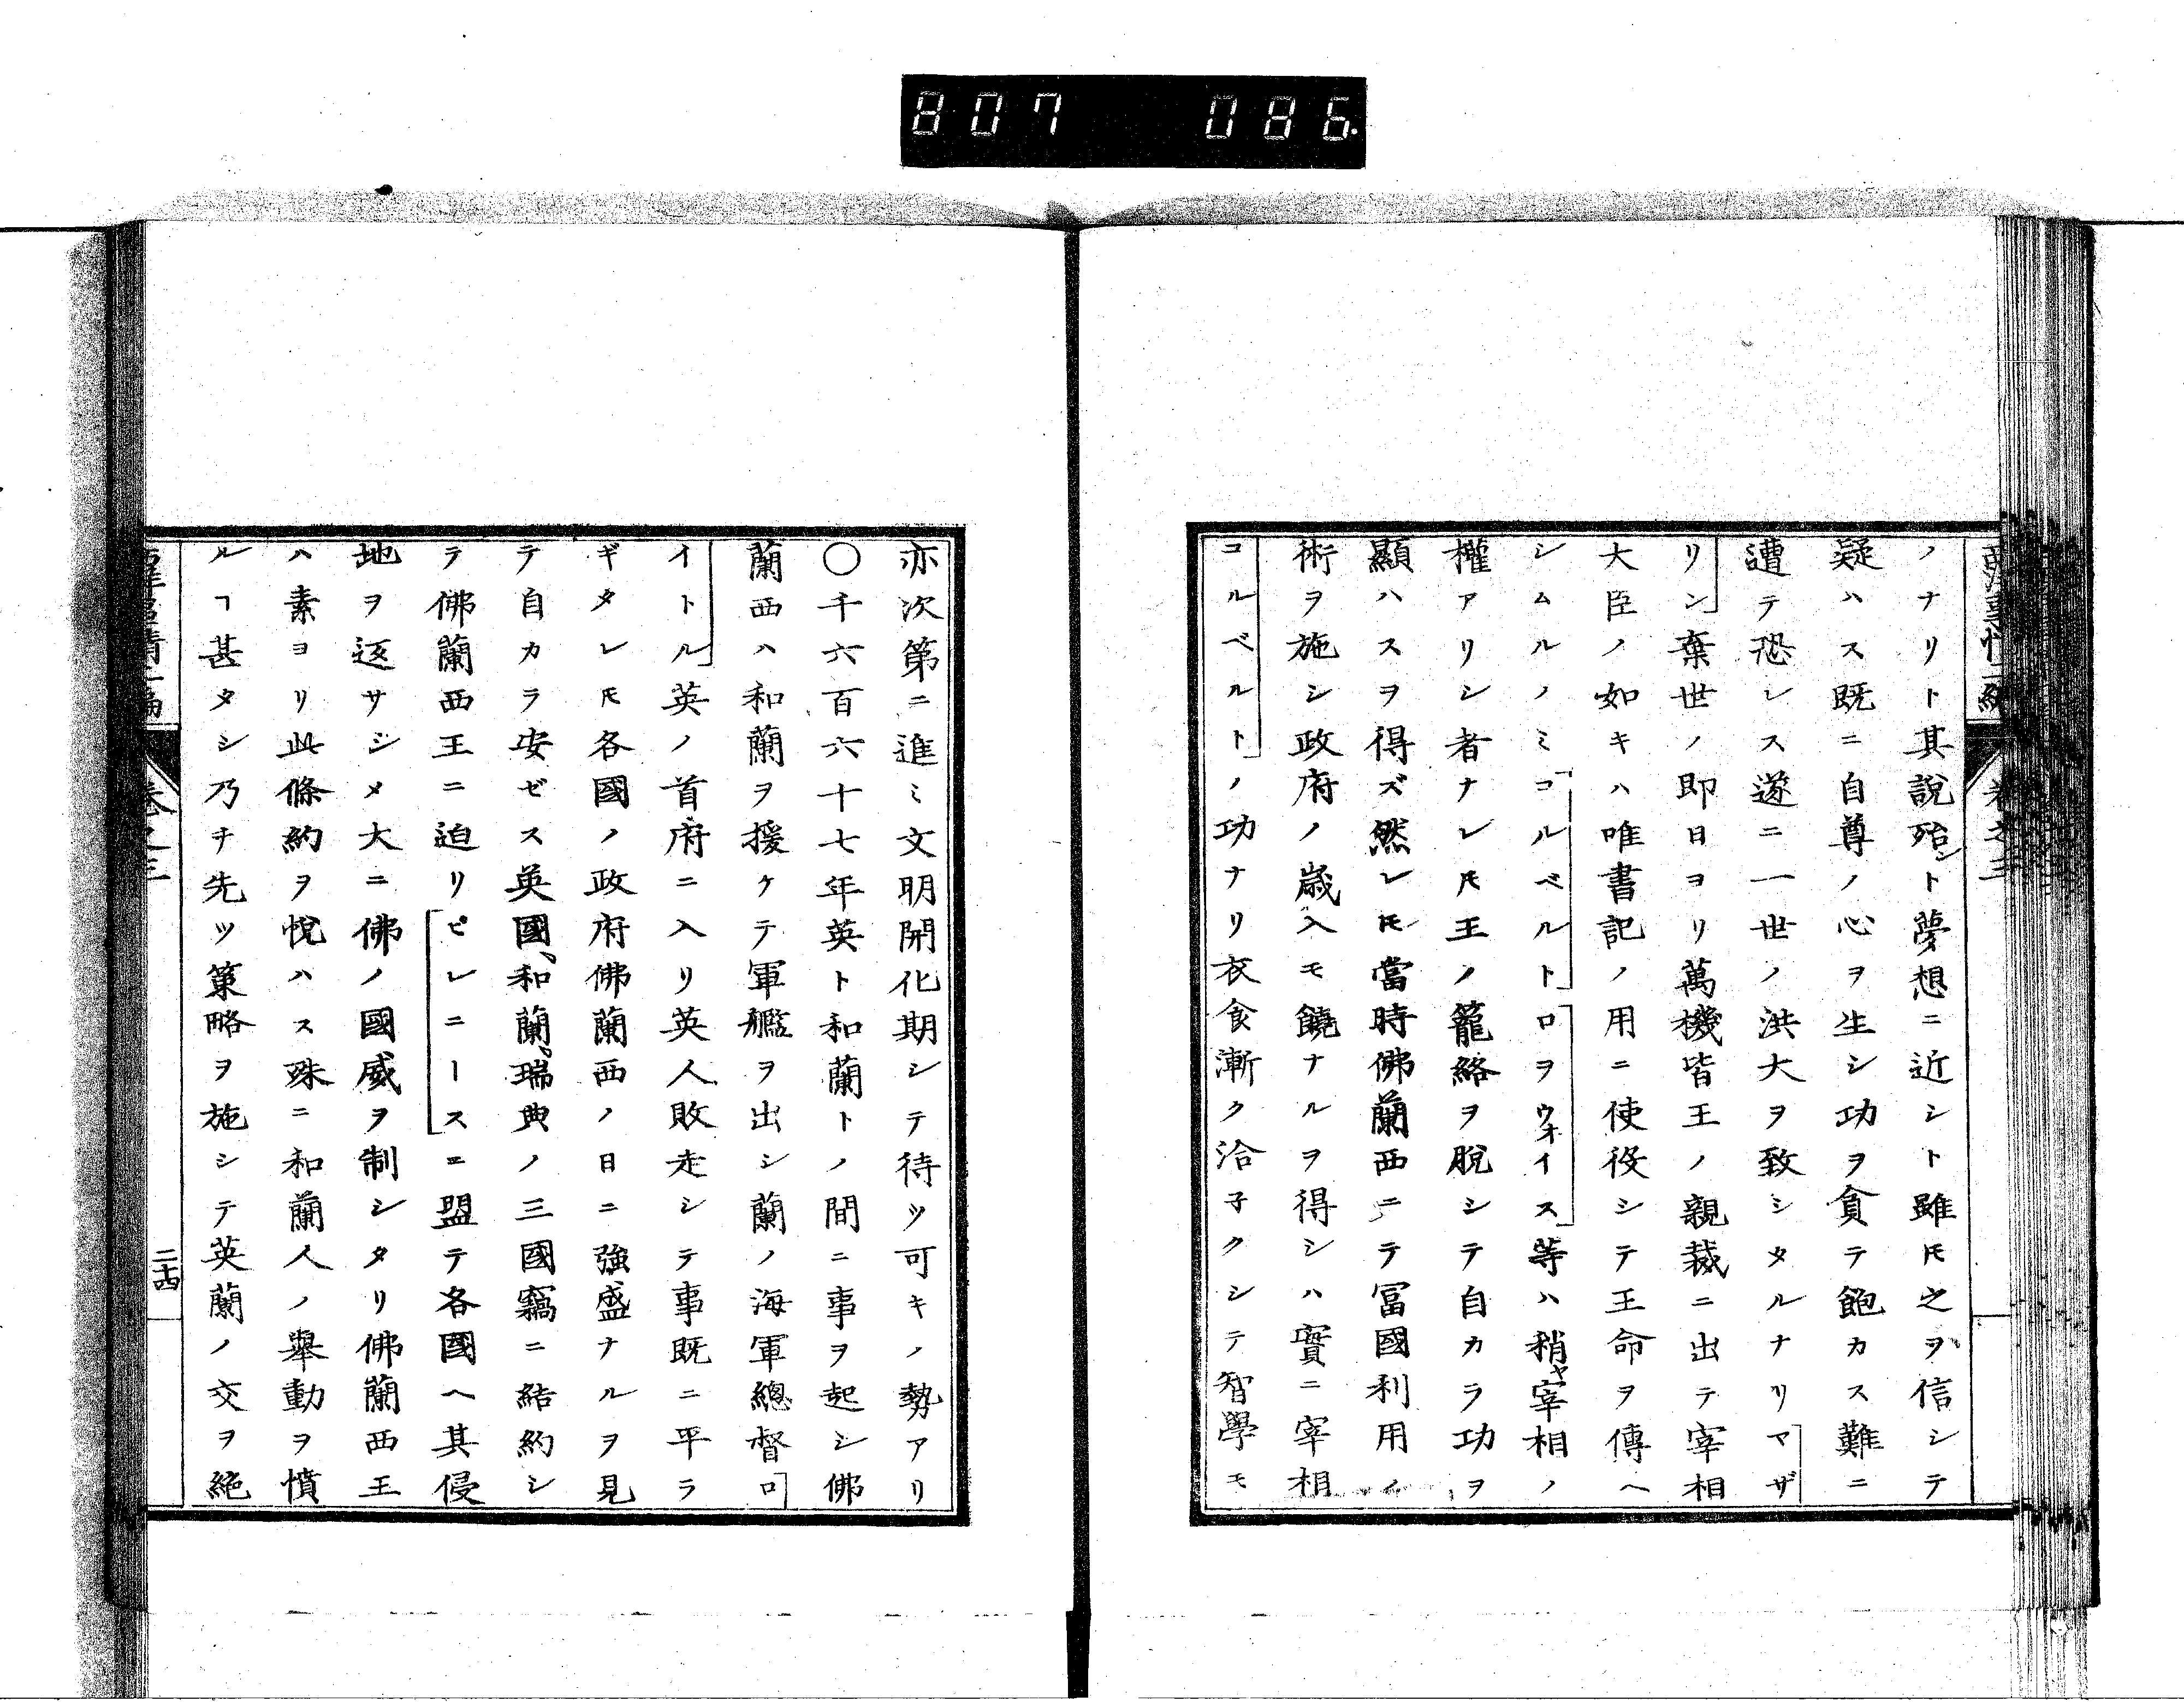 807 086
西洋事情二編 卷之三
ノナリト其說殆ント夢想ニ近シト雖𪜈之ヲ信シテ
疑ハス既ニ自尊ノ心ヲ生シ功ヲ貪テ飽カス難ニ
遭テ恐レス遂ニ一世ノ洪大ヲ致シタルナリマザ
リン棄世ノ即日ヨリ萬機皆王ノ親裁ニ出テ宰相
大臣ノ如キハ唯書記ノ用ニ使役シテ王命ヲ傳ヘ
シムルノミコルベルトロヲウオイス等ハ稍ヤ宰相ノ
權アリシ者ナレ𪜈王ノ籠絡ヲ脫シテ自カラ功ヲ
顯ハスヲ得ズ然レ𪜈當時佛蘭西ニテ冨國利用ノ
術ヲ施シ政府ノ歳入モ饒ナルヲ得シハ實ニ宰相
コルベルトノ功ナリ衣食漸ク洽子クシテ智學モ
亦次第ニ進ミ文明開化期シテ待ツ可キノ勢アリ
〇千六百六十七年英ト和蘭トノ間ニ事ヲ起シ佛
蘭西ハ和蘭ヲ援ケテ軍艦ヲ出シ蘭ノ海軍總督ロ
イトル英ノ首府ニ入リ英人敗走シテ事既ニ平ラ
ギタレ𪜈各國ノ政府佛蘭西ノ日ニ強盛ナルヲ見
テ自カラ安ゼス英國、和蘭、瑞典ノ三國竊ニ結約シ
テ佛蘭西王ニ迫リピレニースニ盟テ各國ヘ其侵
地ヲ返サシメ大ニ佛ノ國威ヲ制シタリ佛蘭西王
ハ素ヨリ此條約ヲ悅ハス殊ニ和蘭人ノ舉動ヲ憤
ルヿ甚タシ乃チ先ツ策略ヲ施シテ英蘭ノ交ヲ絕
西洋事情二編 卷之三 二十四